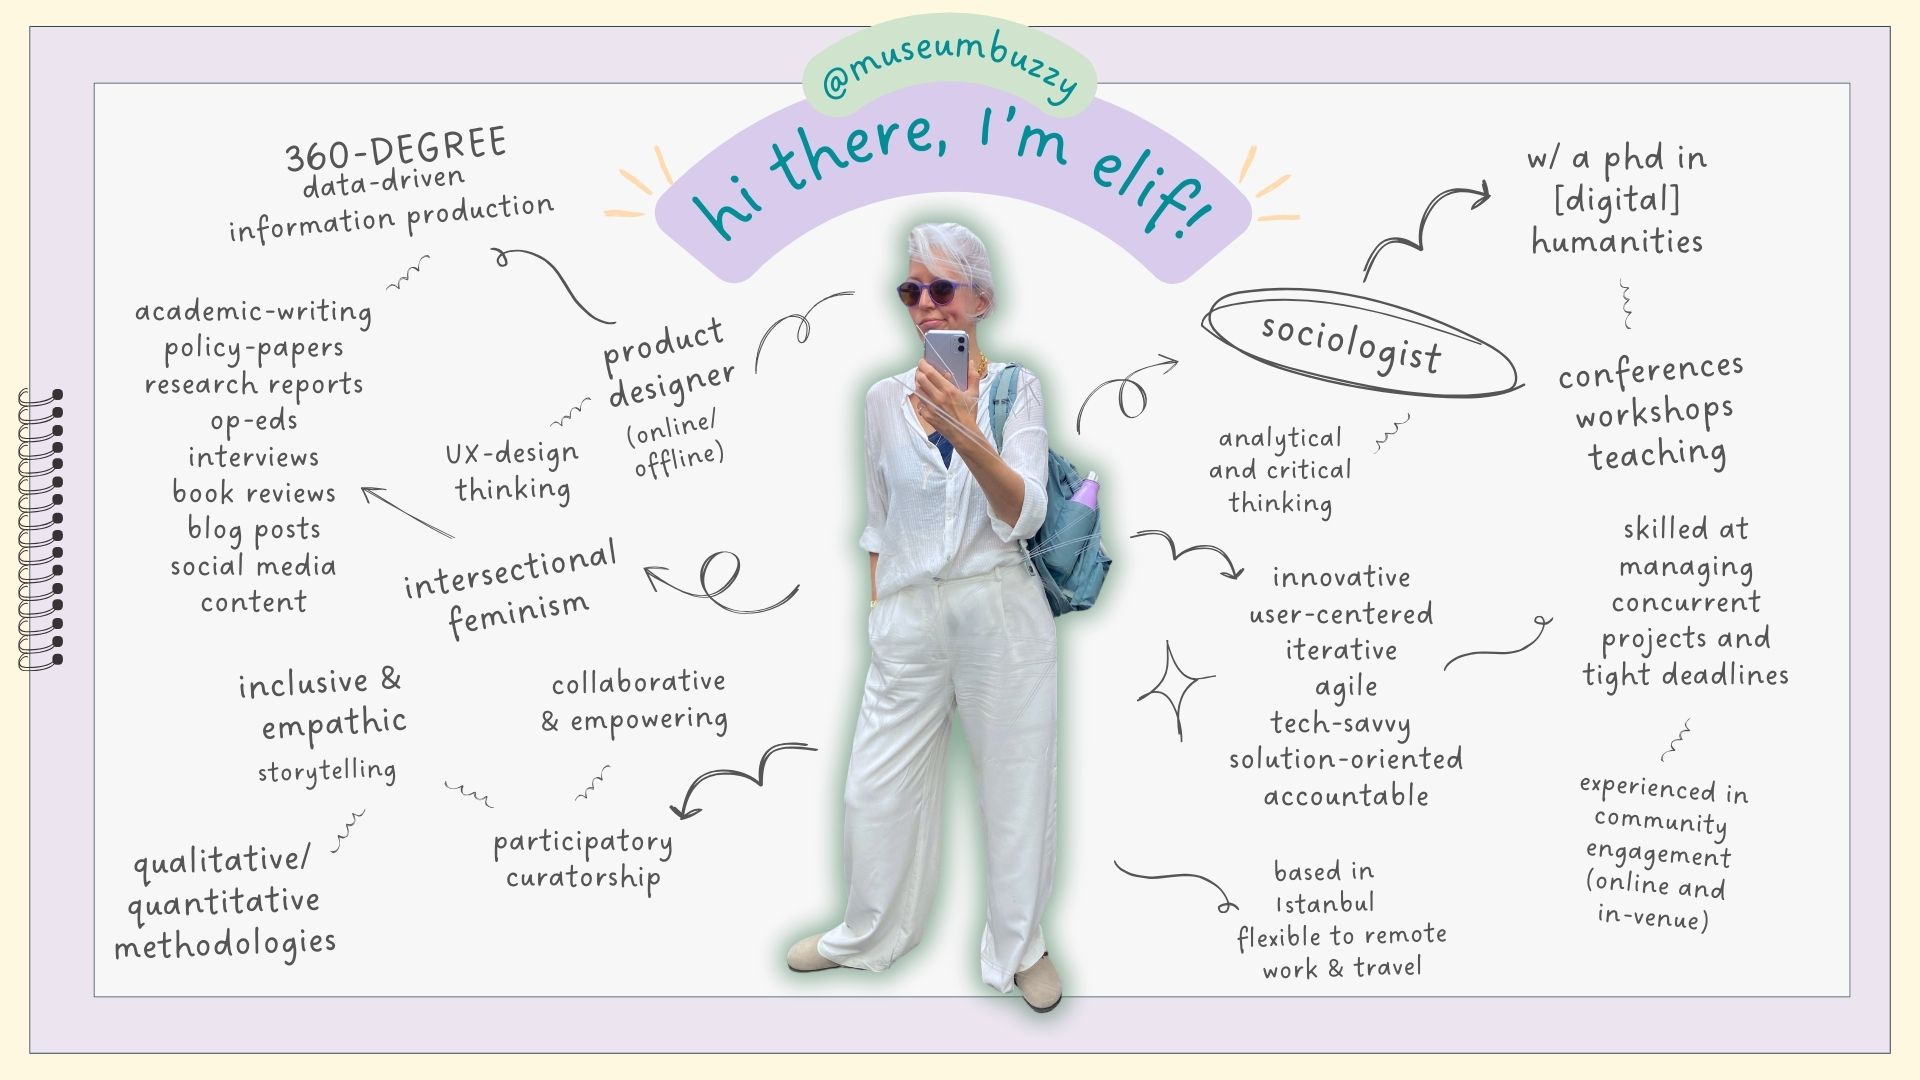 @museumbuzzy
hi there, I'm elif!
360-DEGREE
data-driven
information production
academic-writing
policy-papers
research reports
op-eds
interviews
book reviews
blog posts
social media
content
product
designer
(online/
offline)
UX-design
thinking
intersectional
feminism
inclusive &
empathic
storytelling
collaborative
& empowering
participatory
curatorship
qualitative/
quantitative
methodologies
sociologist
w/ a phd in
[digital]
humanities
conferences
workshops
teaching
analytical
and critical
thinking
innovative
user-centered
iterative
agile
tech-savvy
solution-oriented
accountable
skilled at
managing
concurrent
projects and
tight deadlines
experienced in
community
engagement
(online and
in-venue)
based in
Istanbul
flexible to remote
work & travel